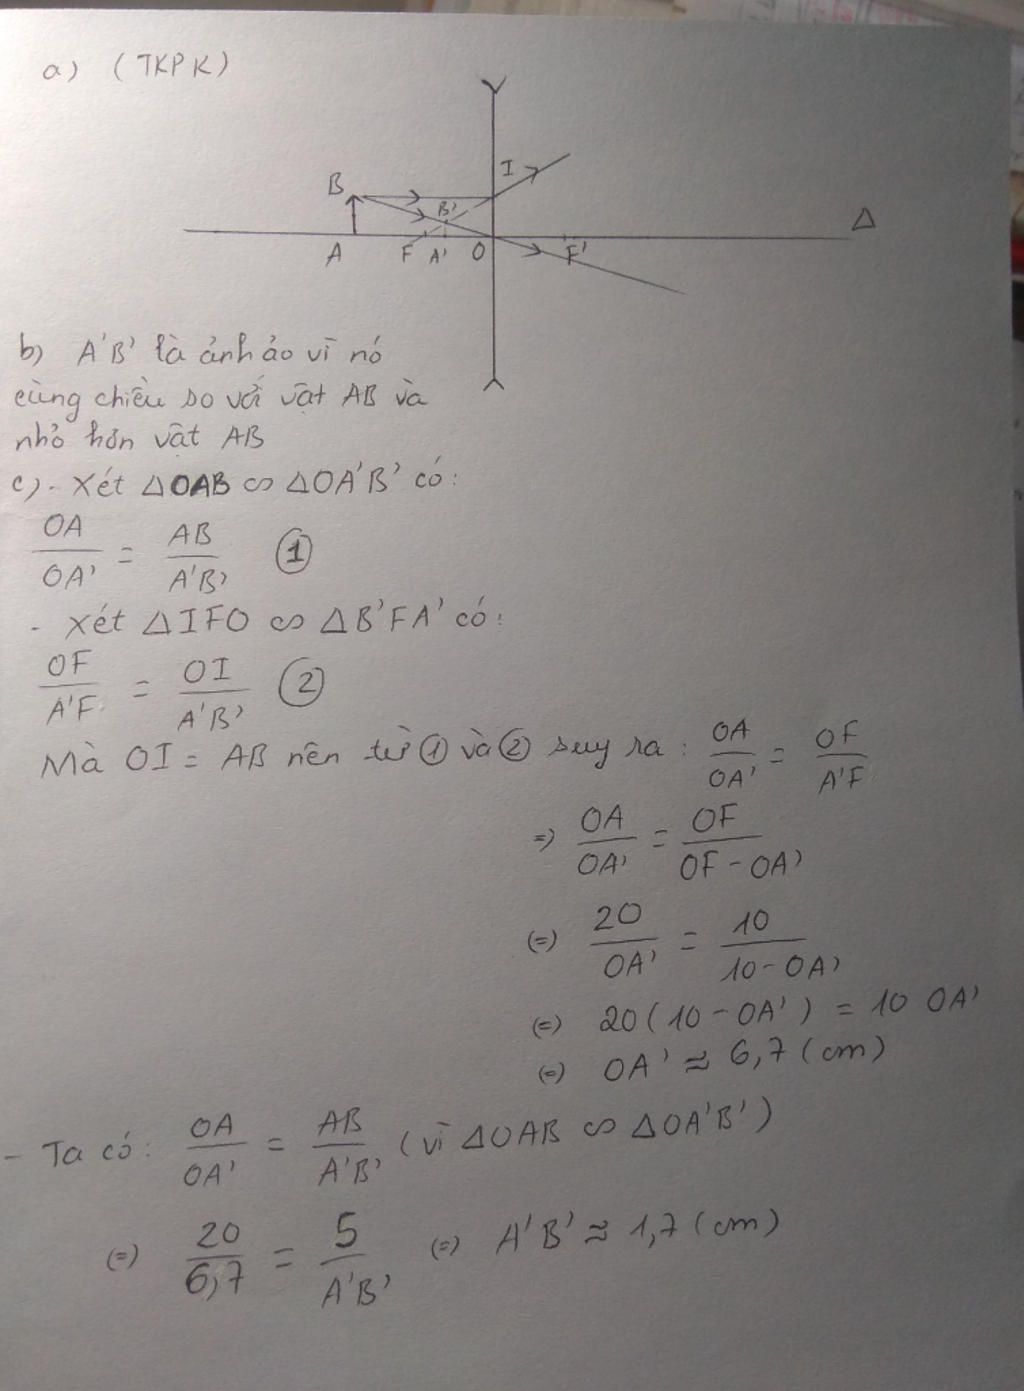 a) (TKPK)
I
B
B'
Δ
A F A' O F'
b) A'B' là ảnh ảo vì nó
cùng chiều so với vật AB và
nhỏ hơn vật AB
c) - Xét ΔOAB ∽ ΔOA'B' có:
OA/OA' = AB/A'B' ①
- Xét ΔIFO ∽ ΔB'FA' có:
OF/A'F = OI/A'B' ②
Mà OI = AB nên từ ① và ② suy ra : OA/OA' = OF/A'F
=) OA/OA' = OF/OF - OA'
(=) 20/OA' = 10/10 - OA'
(=) 20(10 - OA') = 10 OA'
(=) OA' ≈ 6,7 (cm)
- Ta có: OA/OA' = AB/A'B' (vì ΔOAB ∽ ΔOA'B')
(=) 20/6,7 = 5/A'B' (=) A'B' ≈ 1,7 (cm)